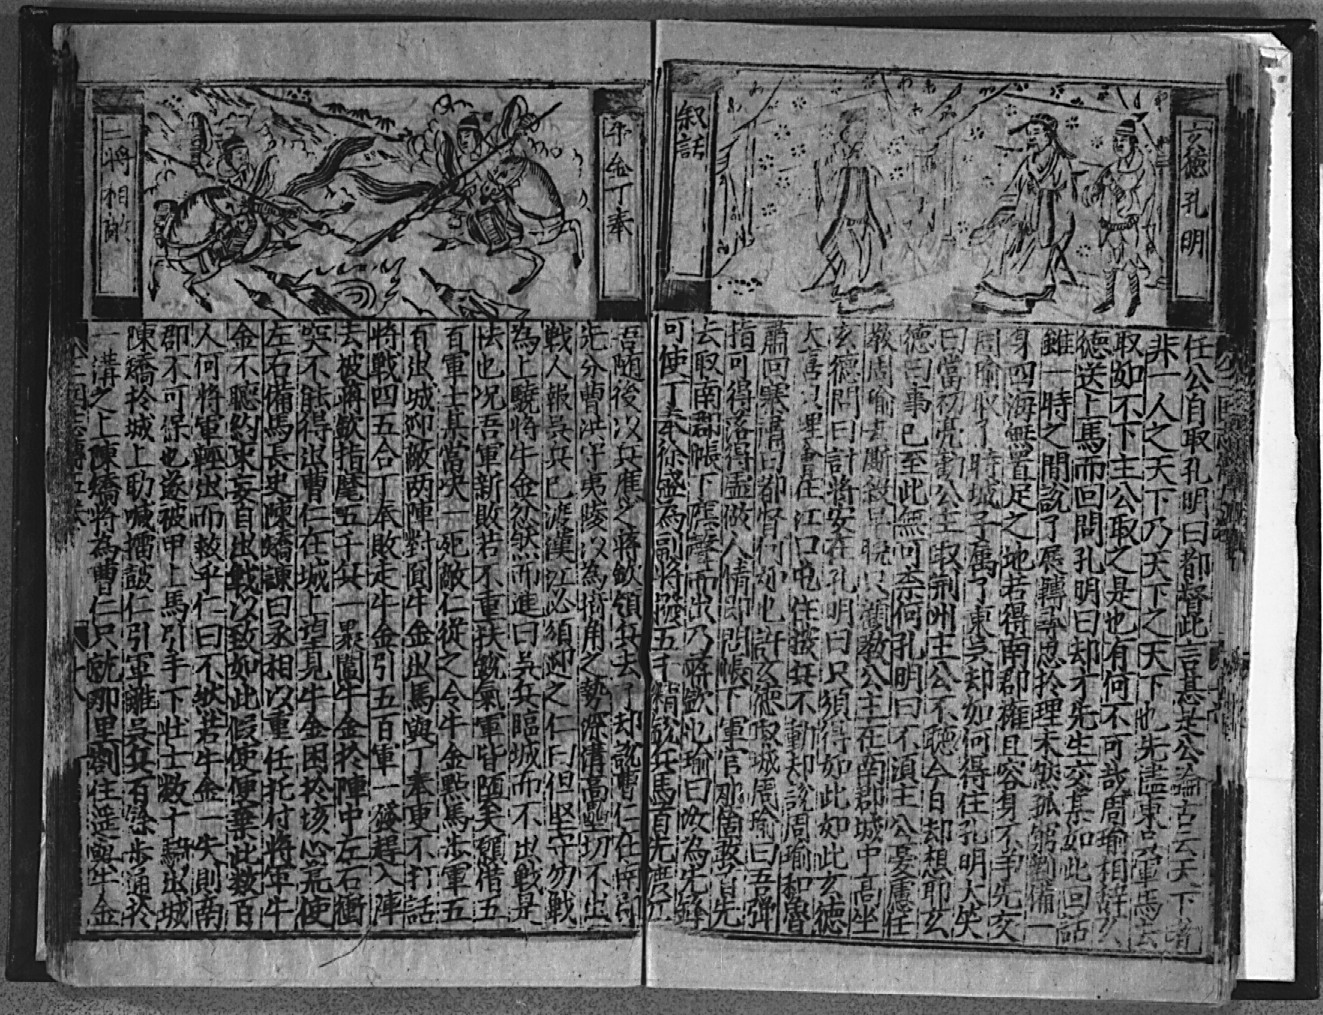 玄德孔明
叙話
任公自取孔明曰都督此言甚是公論古云天下者
非一人之天下乃天下之天下也先盡東吳軍馬去
取如不下主公取之是也有何不可哉周瑜相辭玄
德送上馬而回問孔明曰却才先生交某如此回話
雖一時之間說了展轉尋思於理未然孤窮劉備一
身四海無置足之地若得南郡權且容身不爭先交
周瑜取了時城子屬了東吳却如何得住孔明大笑
曰當初亮勸公主取荊州主公不聽今日却想耶玄
德曰事已至此無可奈何孔明曰不須主公憂慮任
教周瑜去廝殺早晚
教公主在南郡城中高坐
玄德問曰計將安在孔明曰只須得如此如此玄德
大喜只
江口屯住按兵不動却說周瑜和魯
肅回寨肅曰都督何如也許玄德取城周瑜曰吾彈
指可得落得
做人情却問帳下軍官那箇敢首先
去取南郡帳下應聲而出乃蔣欽也瑜曰汝為先鋒
可使丁奉徐盛為副將撥五千精銳兵馬首先度江
牛金丁奉
二將相
吾随後以兵應之蔣欽領兵去了却說曹仁在南郡
先分曹洪守夷陵以為掎角之勢深溝高壘切不出
戰人報吳兵已渡漢江必須迎之仁曰但堅守勿戰
為上驍將牛金忿然而進曰吳兵臨城而不出戰是
怯也况吾軍新敗若不重扶銳氣軍皆隨矣願借五
百軍士某當决一死敵仁從之令牛金點馬步軍五
百出城迎敵两陣對圓牛金出馬與丁奉更不打話
將戰四五合丁奉敗走牛金引五百軍一發趕入陣
去被蔣欽指麾五千兵一裹圍牛金於陣中左右衝
突不能得出曹仁在城上望見牛金困於垓心荒使
左右備馬長史陳矯諫曰丞相以重任托付將軍牛
金不聽約束妄自出戰以致如此假使便棄此数百
人何將軍輕出而救乎仁曰不然若牛金一失則南
郡不可保也遂被甲上馬引手下壯士数十騎出城
陳矯於城上助喊擂鼓仁引軍離吳兵百餘步通於
一溝之上陳矯將為曹仁只就那里劄住遥與牛金